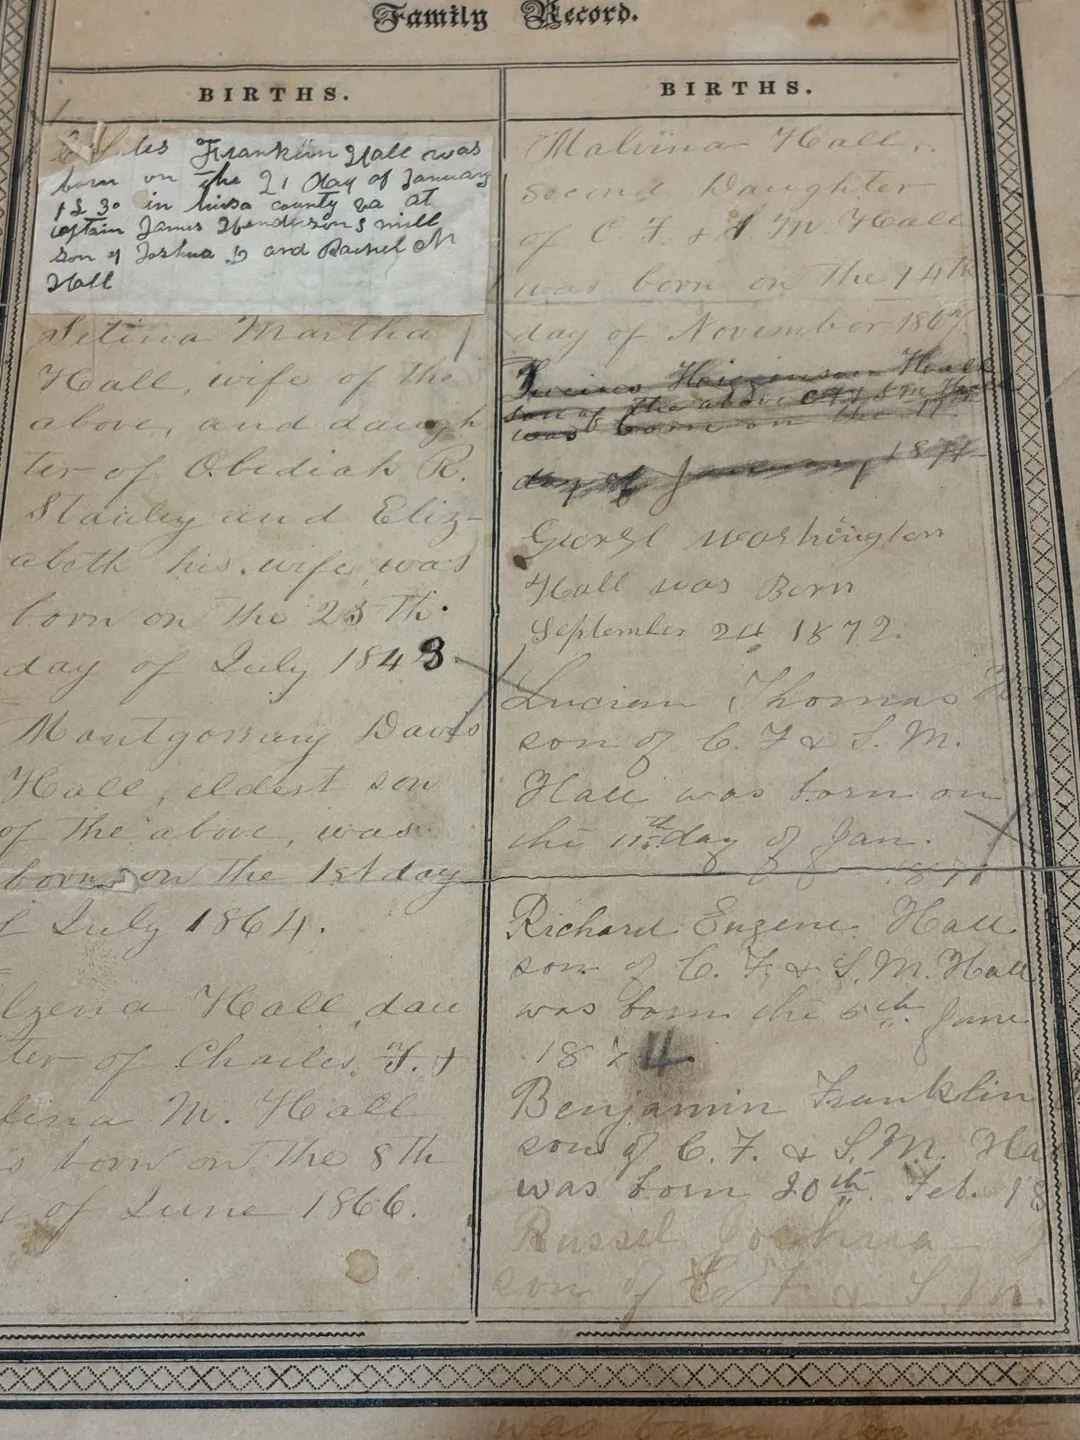 Family Record.
BIRTHS.
Franklin Hall was
born on the 21 day of January
1830 in county va at
James Hendersons mill
son of Joshua D and Rachel M
Hall
Setina Martha
Hall, wife of the
above, and daugh
ter of Obediah R.
Stanley and Eliz-
abeth his wife, was
born on the 25th.
day of July 1843
Montgomery Davis
Hall, eldest son
of the above, was
born on the 1st day
July 1864.
Hall dau
ter of Charles F. &
M. Hall
born on the 8th
of June 1866.
BIRTHS.
Malvina Hall,
second Daughter
of C F. & S. M. Hall
was born on the 14th
day of November 186
son of the above C F & S M
was born on the
day of January, 1871
George Washington
Hall was Born
September 24 1872.
Lucian Thomas H
son of C. F & S. M.
Hall was born on
the 11th day of Jan.
Richard Eugene Hall
son of C. F. & S. M. Hall
was born the 5th June
1874
Benjamin Franklin
son of C. F. & S. M. Ha
was born 20th Feb. 18
Russel Joshua
son of C F & S. M.
was born